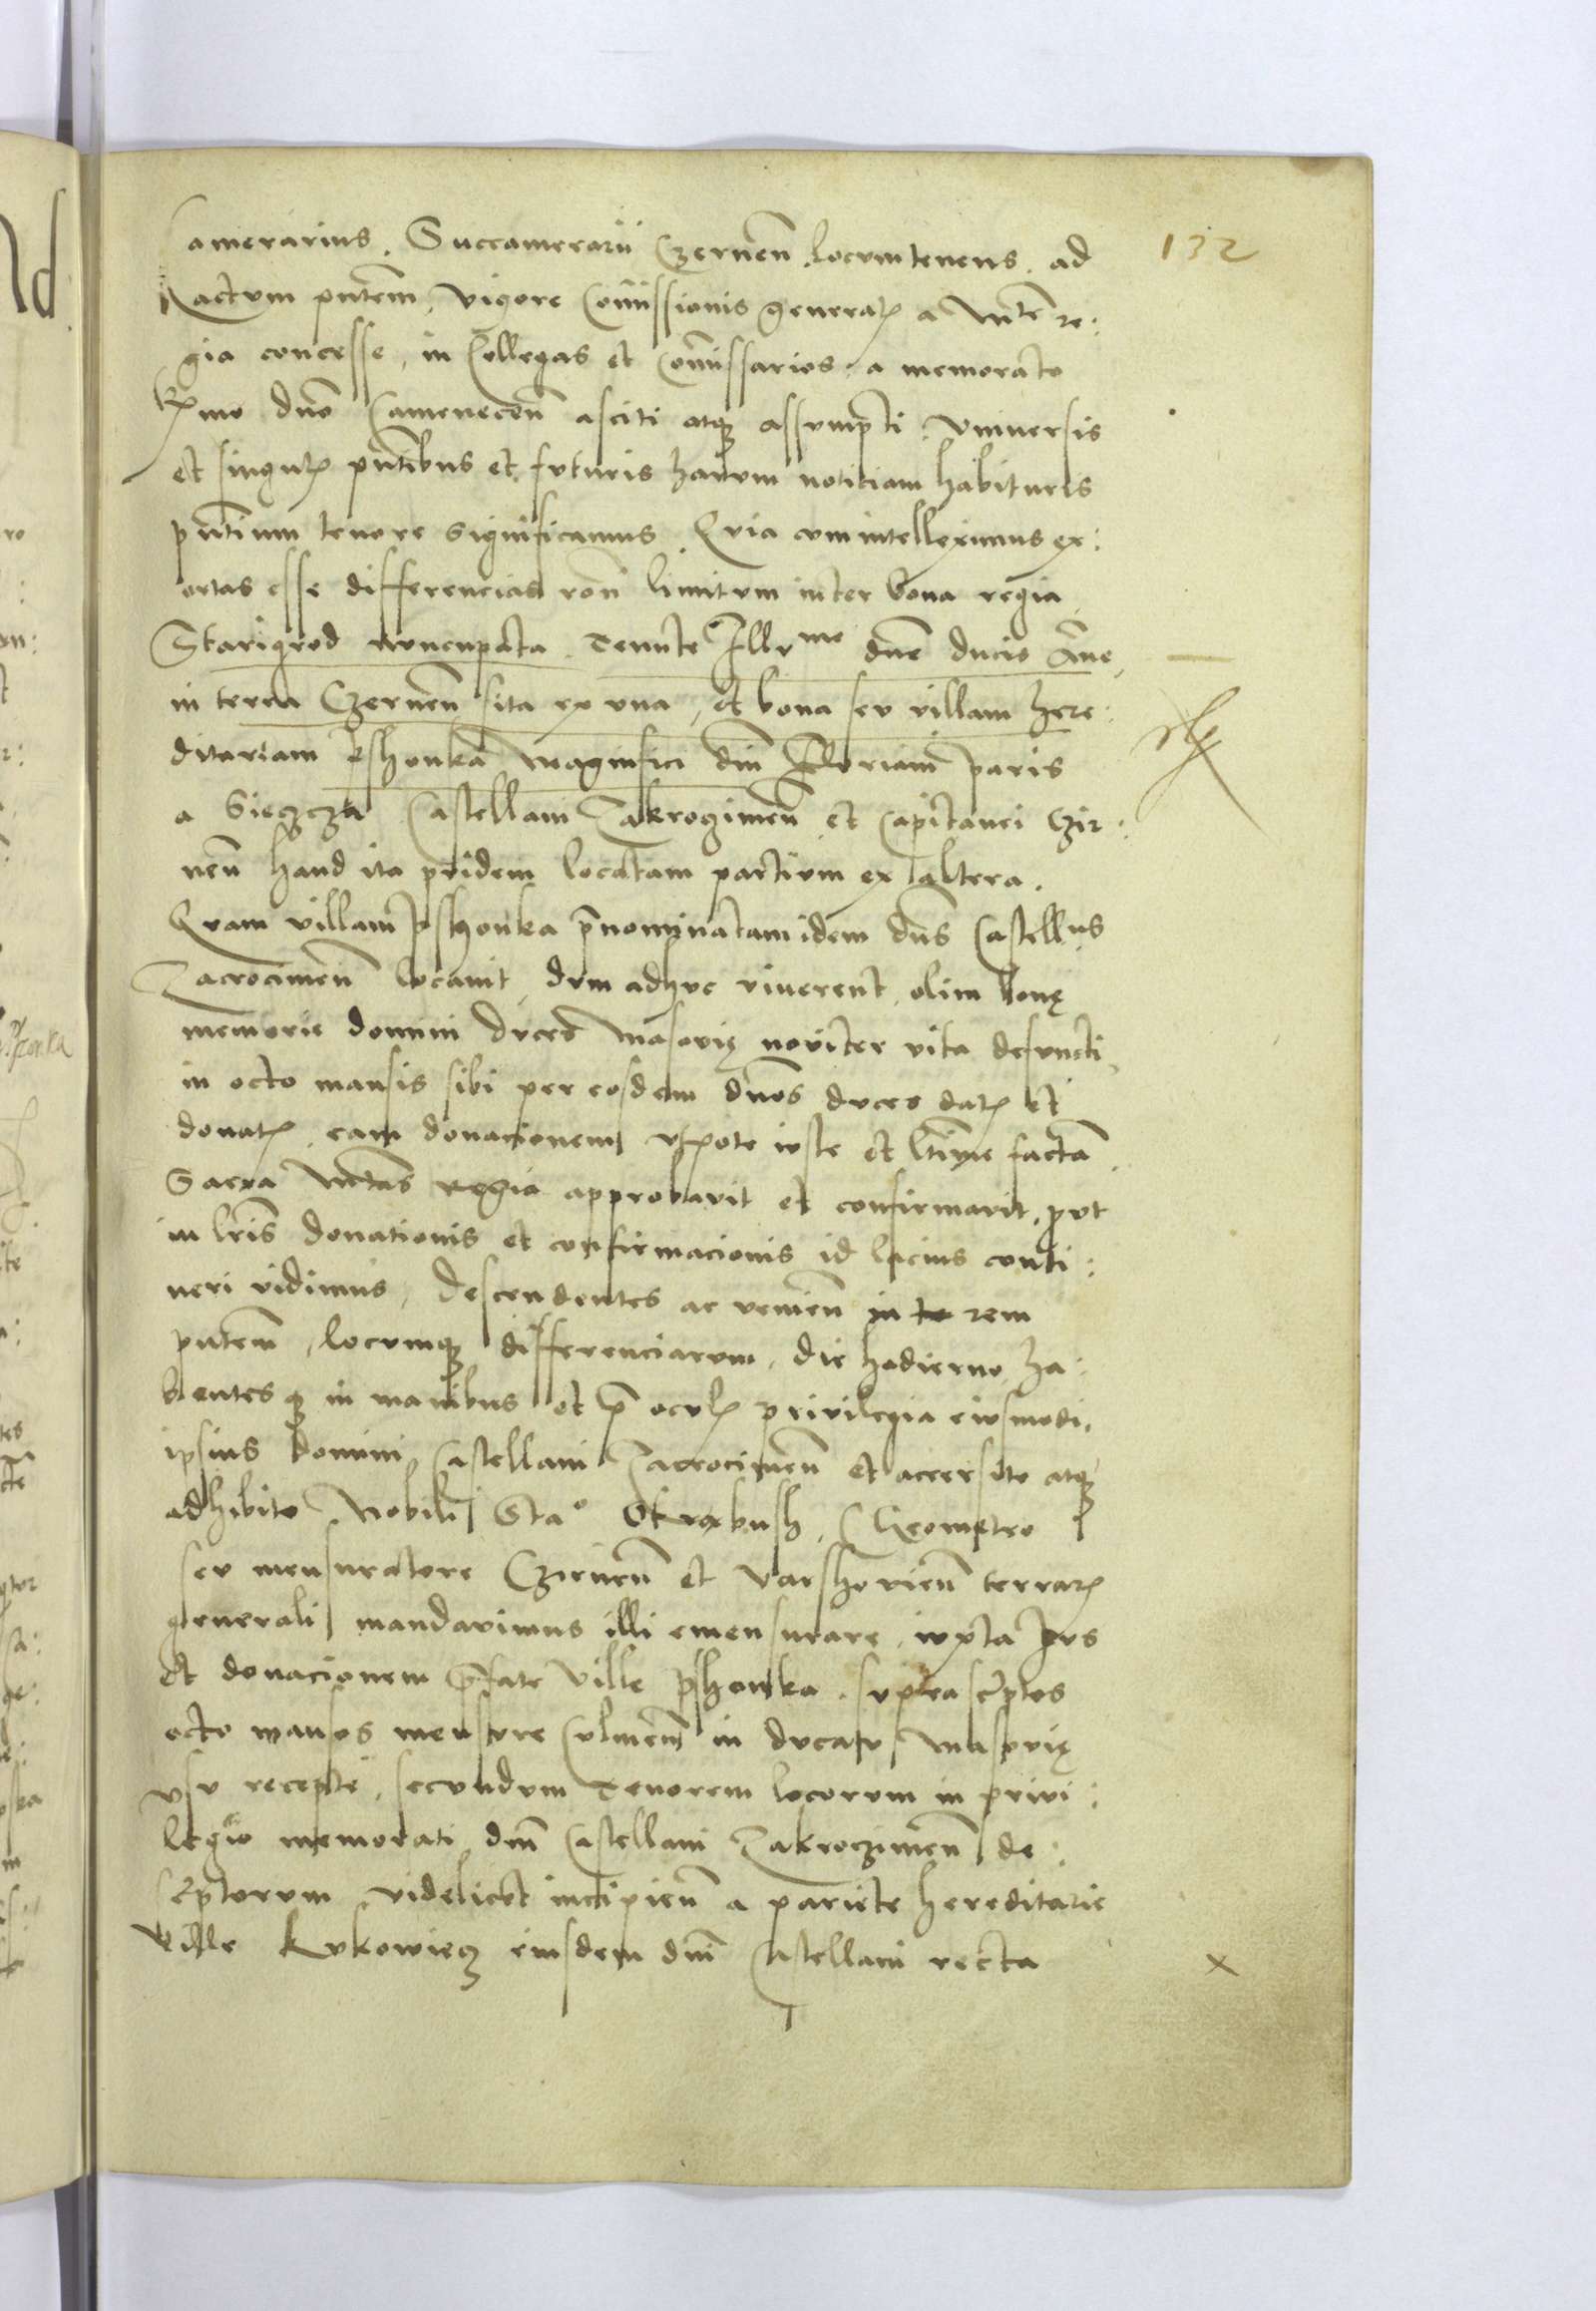 132
Camerarius. Succamerarii Czernen̄ locumtenens. ad
actum pn̄tem, vigore Com̄issionis generał a Mte re:
gia concesse, in Collegas et Com̄issarios a memorato
Rmo dno Camenecen̄ asciti atq assumpti. Vniuersis
et singul̄ pn̄tibus et futuris harum noticiam habituris
pn̄tium tenore significamus. Quia cum intelleximus ex:
ortas esse differencias ron̄ limitum inter bona regia
Starigrod nuncupata. Tenute Illrme dn̄e ducis An̄e,
in terra Czernen̄ sita ex vna, et bona seu villam here:
ditariam Pshonka Magnifici dn̄i Floriani Paris
a Sieczcza Castellani Zakrogimen̄ et Capitanei Czir:
nen̄ haud ita pridem locatam partium ex altera.
Quam villam Pshonka p̄nominatam idem dn̄s Castellus
Zacrocimen̄ locauit, dum adhuc viuerent, olim bonę
memorie domini duces Masouię nouiter vita defuncti,
in octo mansis sibi per eosdem dn̄os duces dat̄ et
donat̄, eam donacionem vtpote iuste et ltīme factā
Sacra Mtas Regia approbauit et confirmauit, put
in lr̄is donationis et confirmacionis id lacius conti:
neri vidimus, Descendentes ac venien̄ in te rem
pn̄tem, locumq differenciarum, die hodierno, ha:
bentesq in manibus et p̄ ocul̄ priuilegia eiusmodi
ipsius domini Castellani Zacrocimen̄ et accersito atq
adhibito Nobili Stao Okrabush, Gheometro
seu mensuratore Czirnen̄ et Varshouien̄ terrar̄
generali mandauimus illi emensurare, iuxta Jus
et donacionem p̄fate Ville Pshonka. supra sc̄ptos
octo mansos mensure Culmen̄ in ducatu Masouię
vsu recepte, secundum tenorem locorum in priui:
legio memorati dn̄i Castellani Zakroczimen̄ de:
sc̄ptorum, videlicet incipien̄ a pariete hereditarie
Ville Kukowiecz eiusdem dn̄i Castellani recta
x